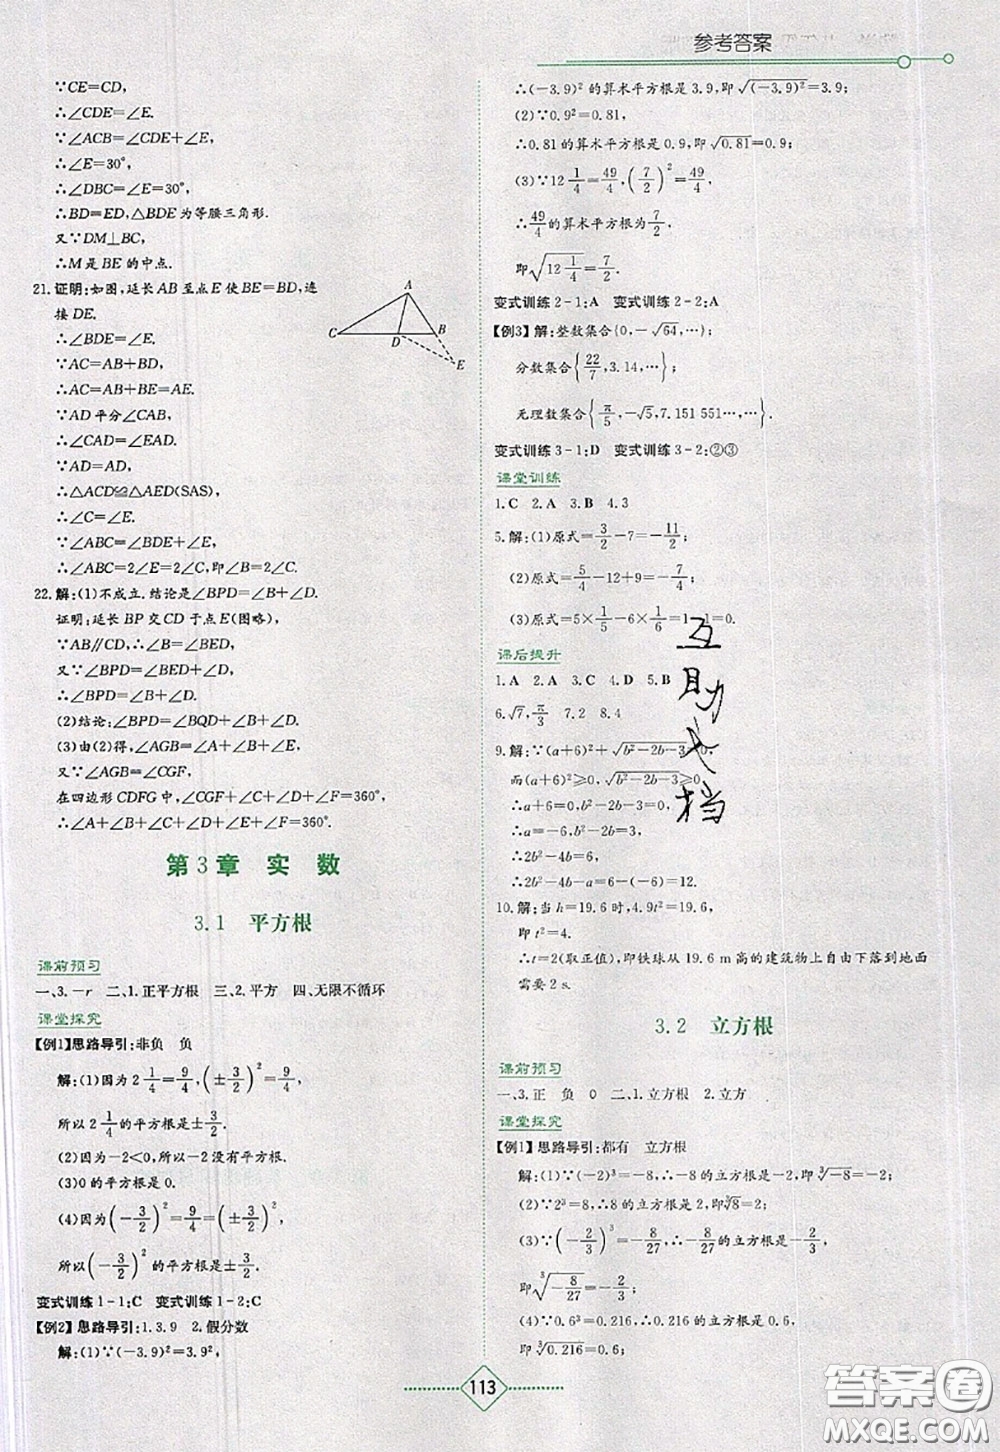 参考答案
∵CE=CD,
∴∠CDE=∠E.
∵∠ACB=∠CDE+∠E,
∴∠E=30°,
∴∠DBC=∠E=30°,
∴BD=ED,△BDE为等腰三角形.
又∵DM⊥BC,
∴M是BE的中点.
21.证明:如图,延长AB至点E使BE=BD,连
接DE.
∴∠BDE=∠E.
∵AC=AB+BD,
∴AC=AB+BE=AE.
∵AD平分∠CAB,
∴∠CAD=∠EAD.
∵AD=AD,
∴△ACD≌△AED(SAS),
∴∠C=∠E.
∵∠ABC=∠BDE+∠E,
∴∠ABC=2∠E=2∠C,即∠B=2∠C.
A
C
D
B
E
22.解:(1)不成立.结论是∠BPD=∠B+∠D.
证明:延长BP交CD于点E(图略),
∵AB∥CD,∴∠B=∠BED,
又∵∠BPD=∠BED+∠D,
∴∠BPD=∠B+∠D.
(2)结论:∠BPD=∠BQD+∠B+∠D.
(3)由(2)得,∠AGB=∠A+∠B+∠E,
又∵∠AGB=∠CGF,
在四边形CDFG中,∠CGF+∠C+∠D+∠F=360°,
∴∠A+∠B+∠C+∠D+∠E+∠F=360°.
第3章 实 数
3.1 平方根
课前预习
一、3.-r 二、1.正平方根 三、2.平方 四、无限不循环
课堂探究
【例1】思路导引:非负 负
解:(1)因为2 1/4=9/4,(±3/2)²=9/4,
所以2 1/4的平方根是±3/2.
(2)因为-2<0,所以-2没有平方根.
(3)0的平方根是0.
(4)因为(-3/2)²=9/4=(±3/2)²,
所以(-3/2)²的平方根是±3/2.
变式训练1-1:C 变式训练1-2:C
【例2】思路导引:1.3.9 2.假分数
解:(1)∵(-3.9)²=3.9²,
∴(-3.9)²的算术平方根是3.9,即√(-3.9)²=3.9;
(2)∵0.9²=0.81,
∴0.81的算术平方根是0.9,即√0.81=0.9;
(3)∵12 1/4=49/4,(7/2)²=49/4,
∴49/4的算术平方根为7/2,
即√(12 1/4)=7/2.
变式训练2-1:A 变式训练2-2:A
【例3】解:整数集合{0,-√64,…};
分数集合{22/7,3.14,…};
无理数集合{π/5,-√5,7.151 551…,…}.
变式训练3-1:D 变式训练3-2:②③
课堂训练
1.C 2.A 3.B 4.3
5.解:(1)原式=3/2-7=-11/2;
(2)原式=5/4-12+9=-7/4;
(3)原式=5×1/5-6×1/6=1-1=0.
课后提升
1.A 2.A 3.C 4.D 5.B
6.√7,π/3 7.2 8.4
9.解:∵(a+6)²+√(b²-2b-3)=0,
而(a+6)²≥0,√(b²-2b-3)≥0,
∴a+6=0,b²-2b-3=0,
∴a=-6,b²-2b=3,
∴2b²-4b=6,
∴2b²-4b-a=6-(-6)=12.
10.解:当h=19.6时,4.9t²=19.6,
即t²=4.
∴t=2(取正值),即铁球从19.6 m高的建筑物上自由下落到地面
需要2 s.
互
助
文
档
3.2 立方根
课前预习
一、3.正 负 0 二、1.立方根 2.立方
课堂探究
【例1】思路导引:都有 立方根
解:(1)∵(-2)³=-8,∴-8的立方根是-2,即∛-8=-2;
(2)∵2³=8,∴8的立方根是2,即∛8=2;
(3)∵(-2/3)³=-8/27,∴-8/27的立方根是-2/3,
即∛(-8/27)=-2/3;
(4)∵0.6³=0.216,∴0.216的立方根是0.6,
即∛0.216=0.6;
113
答案圈
MXQE.COM